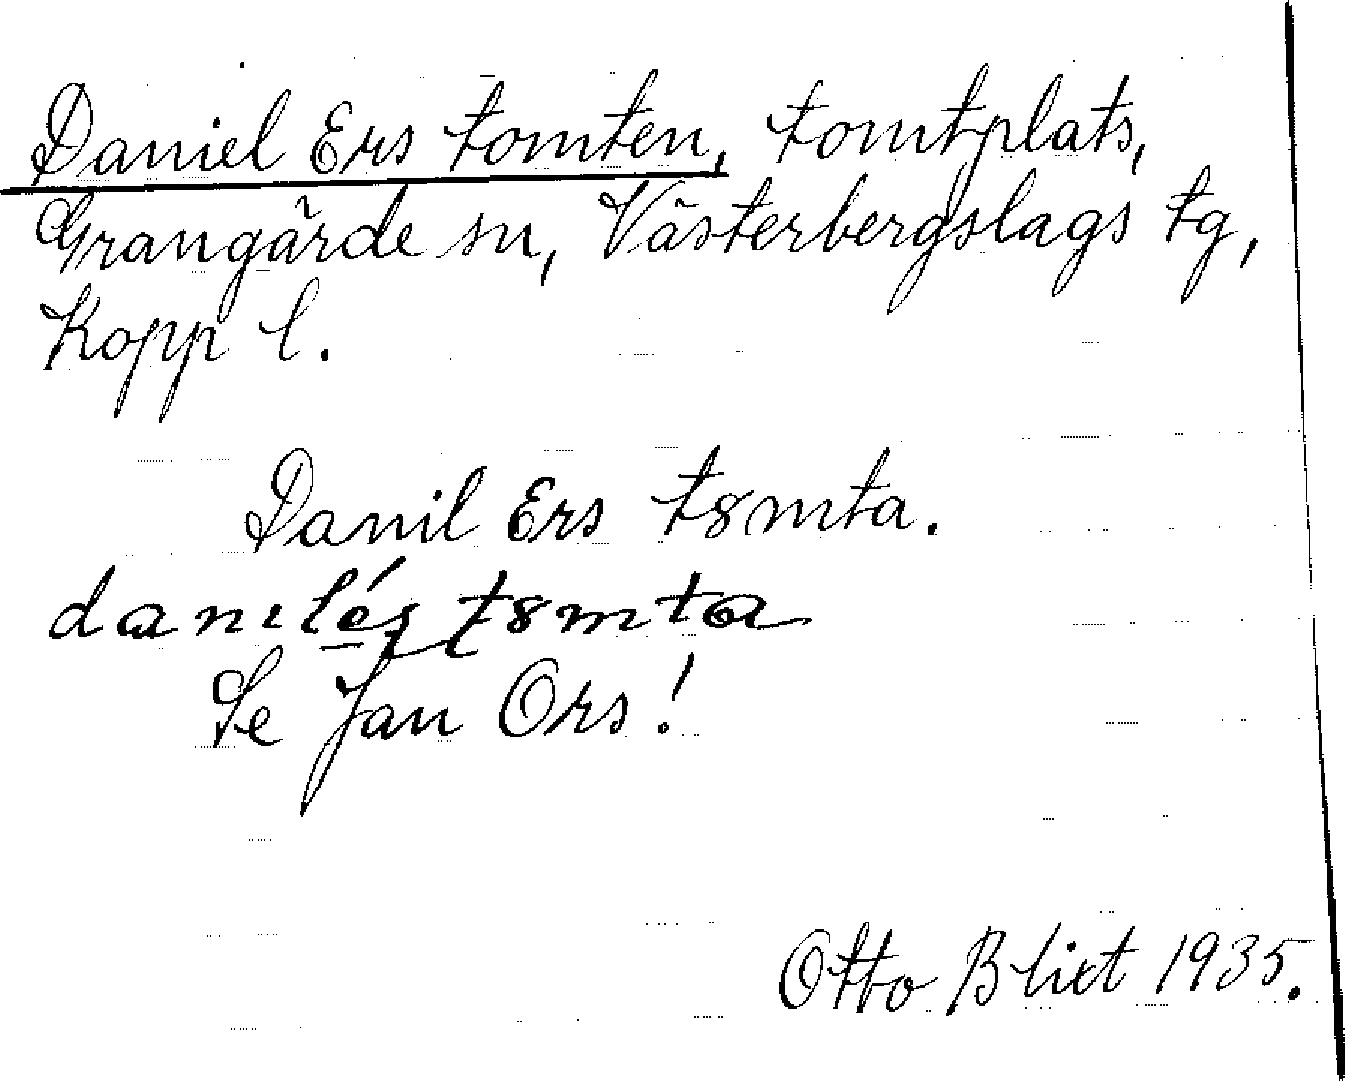 Daniel Ers tomten, tomtplats,
Grangärde sn, Västerbergslags tg,
Kopp l.
Danil Ers t8mta.
danılés t8mta
Se Jan Ors!
Otto Blixt 1935.